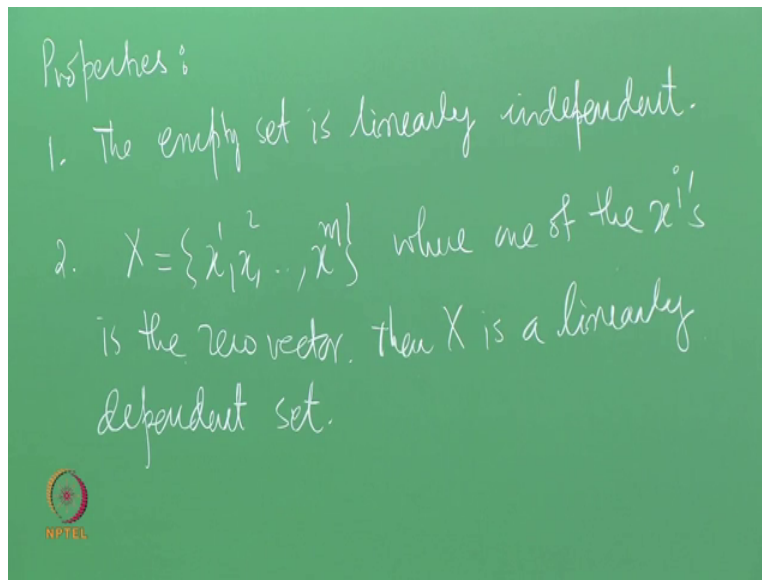 Properties:
1. The empty set is linearly independent.
2. X = {x¹, x², .., xᵐ} where one of the xⁱ's
is the zero vector. then X is a linearly
dependent set.
NPTEL